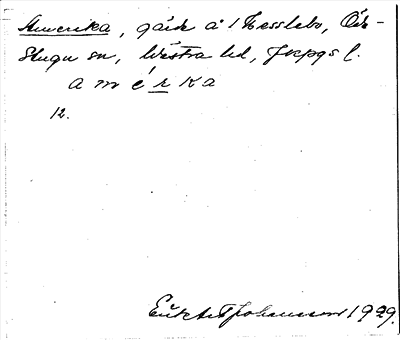 Amerika, gård å 1 Hesslebo, Öde-
Stugu sn, Västra hd, Jkpgs l.
a m é r k a
12.
Erik Johansson 1929.